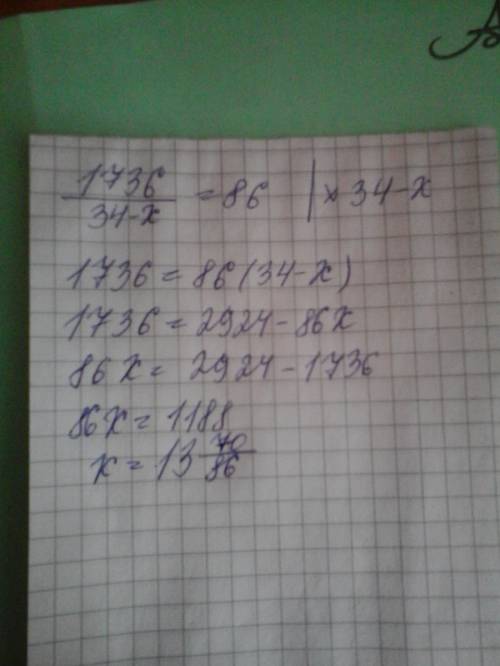 1736/34-x = 86 | × 34-x
1736 = 86(34-x)
1736 = 2924-86x
86x = 2924-1736
86x = 1188
x = 13 70/86